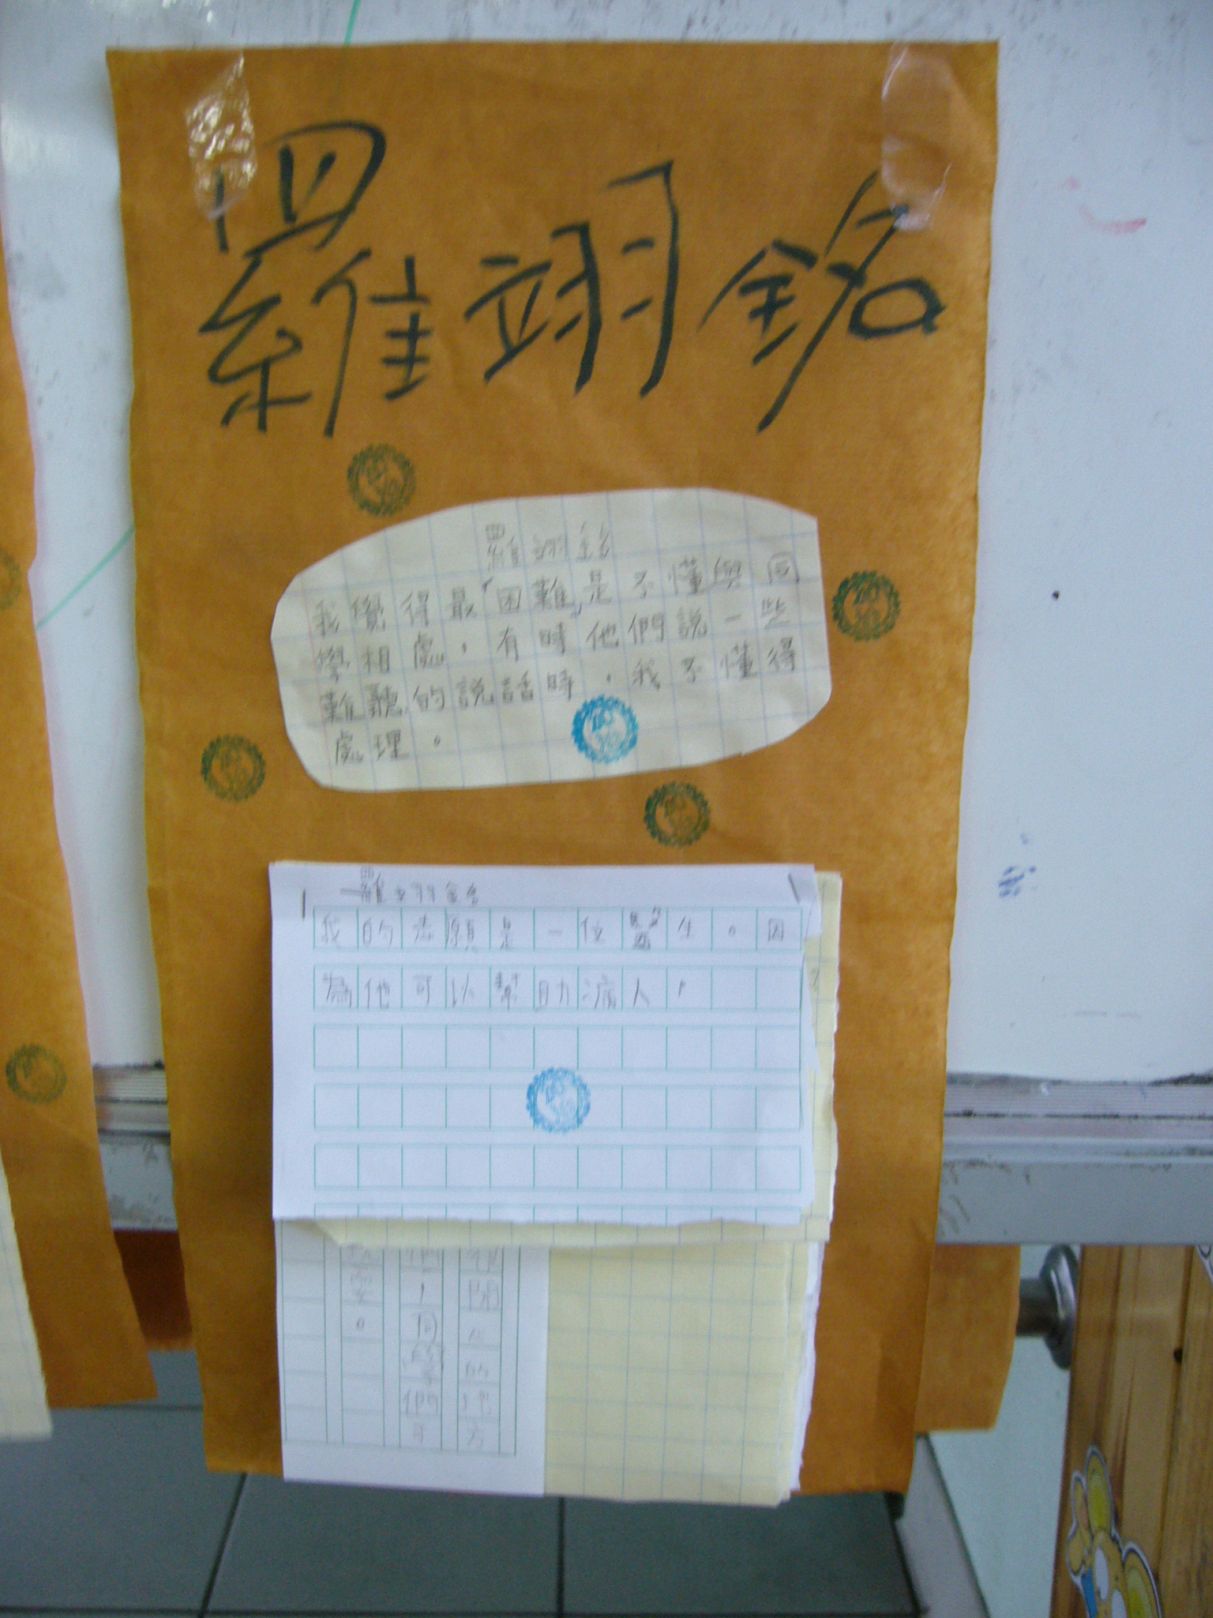 羅翊銘
羅翊銘
我覺得最「困難」是不懂與同
學相處，有時他們說一些
難聽的說話時，我不懂得
處理。
羅翊銘
我的志願是一位醫生。因
為他可以幫助病人，
開心的地方
們，同學們可
。